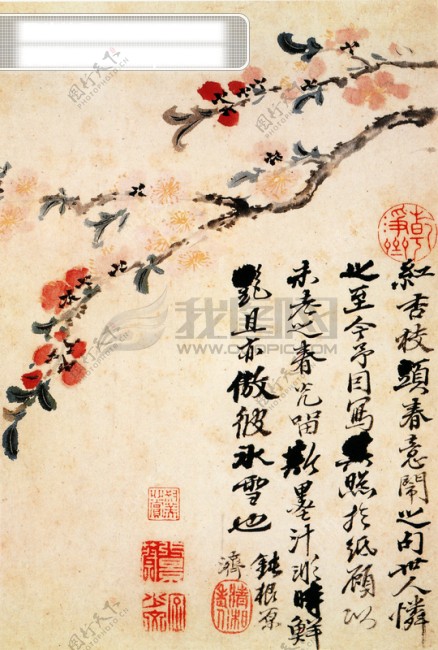 紅杏枝頭春意鬧之句世人憐
之至今予因寫其照於紙顧以
未老之春光留斯墨汁時鮮
艷且亦傲彼冰雪也
鈍根原
濟
我图网
WWW.OOOPIC.COM
图行天下
PHOTOPHOTO.CN